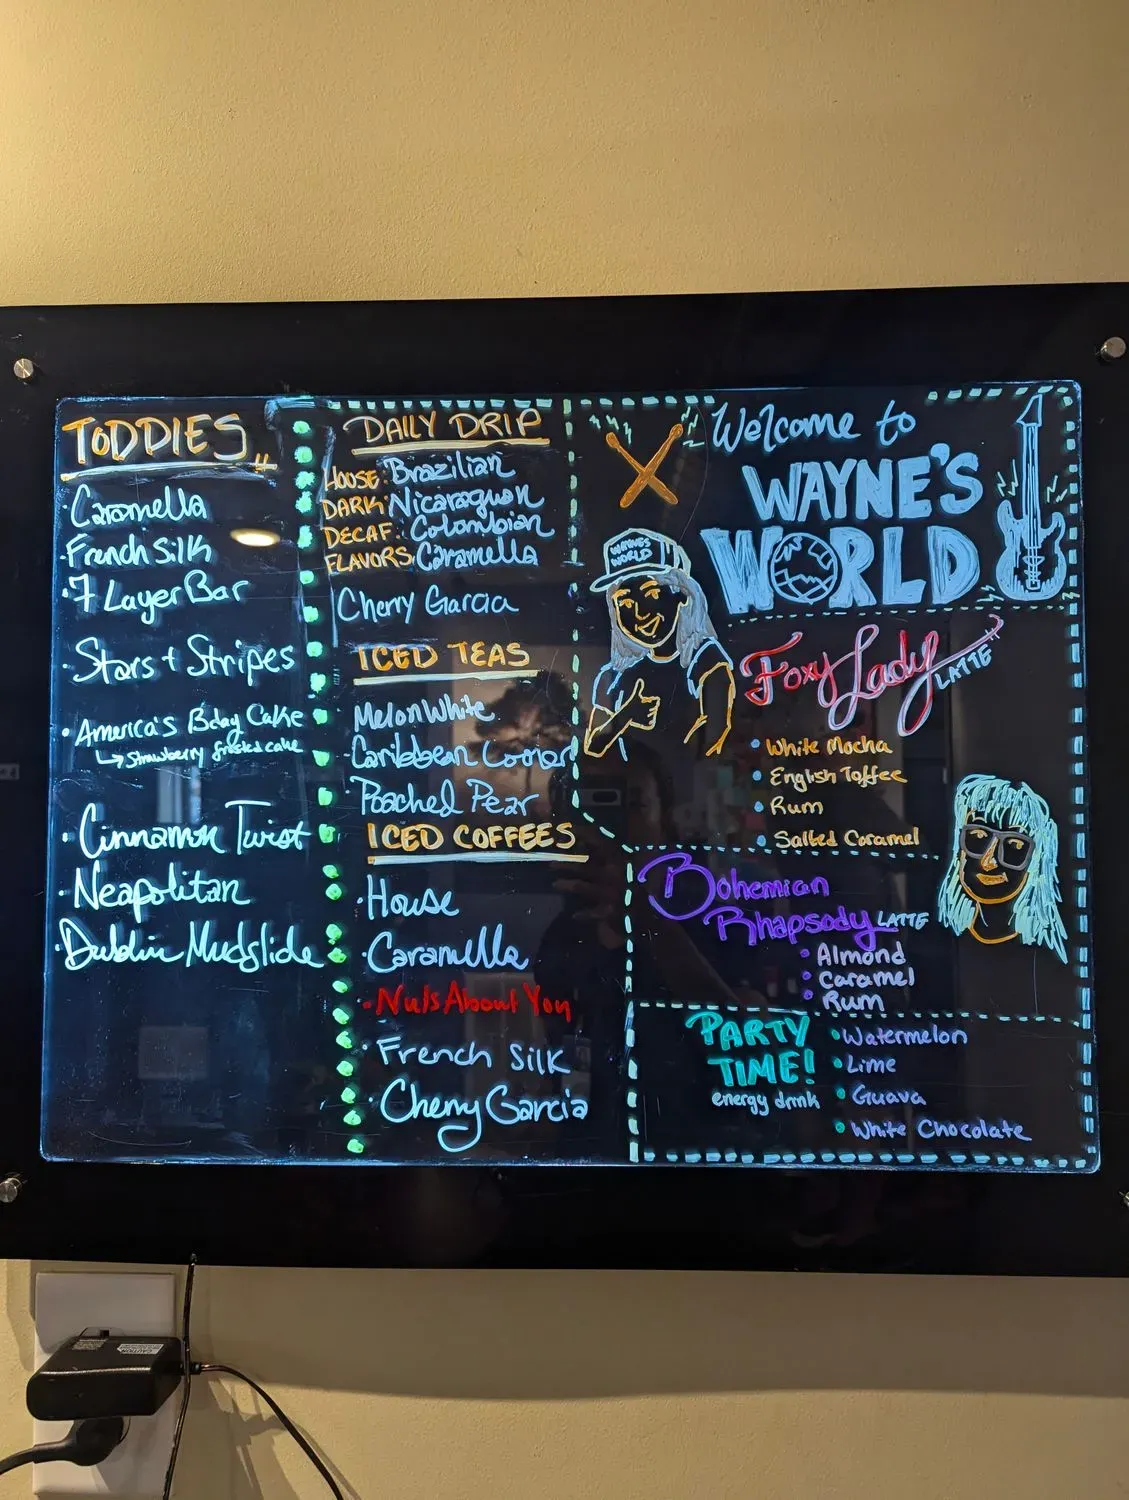 TODDIES
Caramella
French Silk
7 Layer Bar
Stars + Stripes
America's Bday Cake
↳ Strawberry frosted cake
Cinnamon Twist
Neapolitan
Dublin Mudslide
DAILY DRIP
HOUSE: Brazilian
DARK: Nicaraguan
DECAF: Colombian
FLAVORS: Caramella
Cherry Garcia
ICED TEAS
Melon White
Caribbean
Poached Pear
ICED COFFEES
House
Caramella
Nuts About You
French Silk
Cherry Garcia
Welcome to
WAYNE'S
WORLD
WAYNE'S
WORLD
Foxy Lady
LATTE
White Mocha
English Toffee
Rum
Salted Caramel
Bohemian
Rhapsody LATTE
Almond
Caramel
Rum
PARTY
TIME!
energy drink
Watermelon
Lime
Guava
White Chocolate